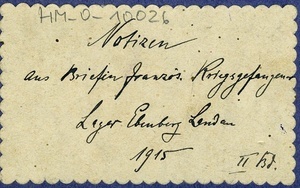 HM-0-10026
Notizen
aus Briefen französ. Kriegsgefangener
Lager Ebenberg Landau
1915
II Bd.